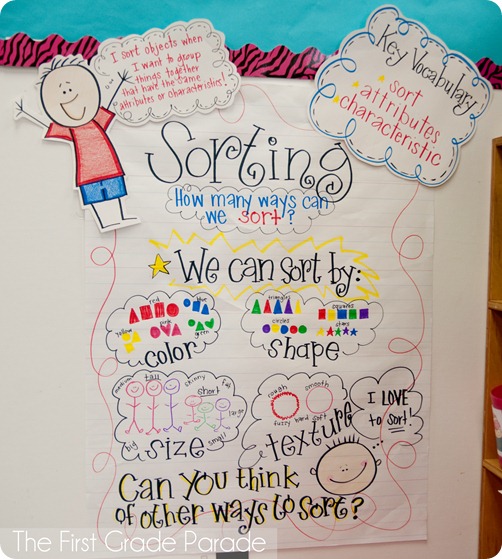 I sort objects when
I want to group
things together
that have the same
attributes or characteristics!
Key Vocabulary
sort
attributes
characteristic
Sorting
How many ways can
we sort?
We can sort by:
red
blue
yellow
pink
green
color
triangles
squares
circles
stars
shape
medium
tall
skinny
fat
short
large
big
small
size
rough
smooth
fuzzy hard soft
texture
I LOVE
to sort!
Can you think
of other ways to sort?
The First Grade Parade